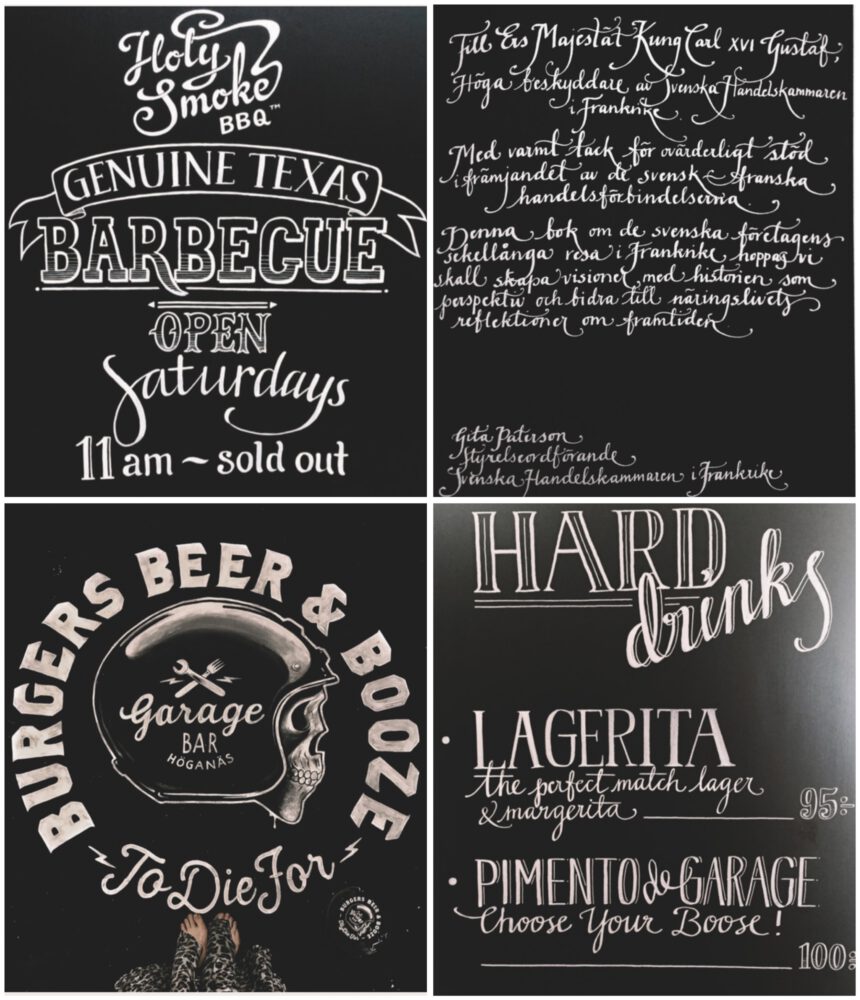 Holy
Smoke
BBQ™
GENUINE TEXAS
BARBECUE
OPEN
Saturdays
11 am ~ sold out
Till Ers Majestät Kung Carl XVI Gustaf,
Höga beskyddare av Svenska Handelskammaren
i Frankrike.
Med varmt tack för ovärderligt stöd
i främjandet av de svensk-franska
handelsförbindelserna.
Denna bok om de svenska företagens
sekellånga resa i Frankrike hoppas vi
skall skapa visioner med historien som
perspektiv och bidra till näringslivets
reflektioner om framtiden
Gita Paterson
Styrelseordförande
Svenska Handelskammaren i Frankrike
BURGERS BEER & BOOZE
Garage
BAR
HÖGANÄS
To Die For
BURGERS BEER & BOOZE
HARD
drinks
· LAGERITA
the perfect match lager
& margerita 95:-
· PIMENTO de GARAGE
Choose Your Boose!
100:-